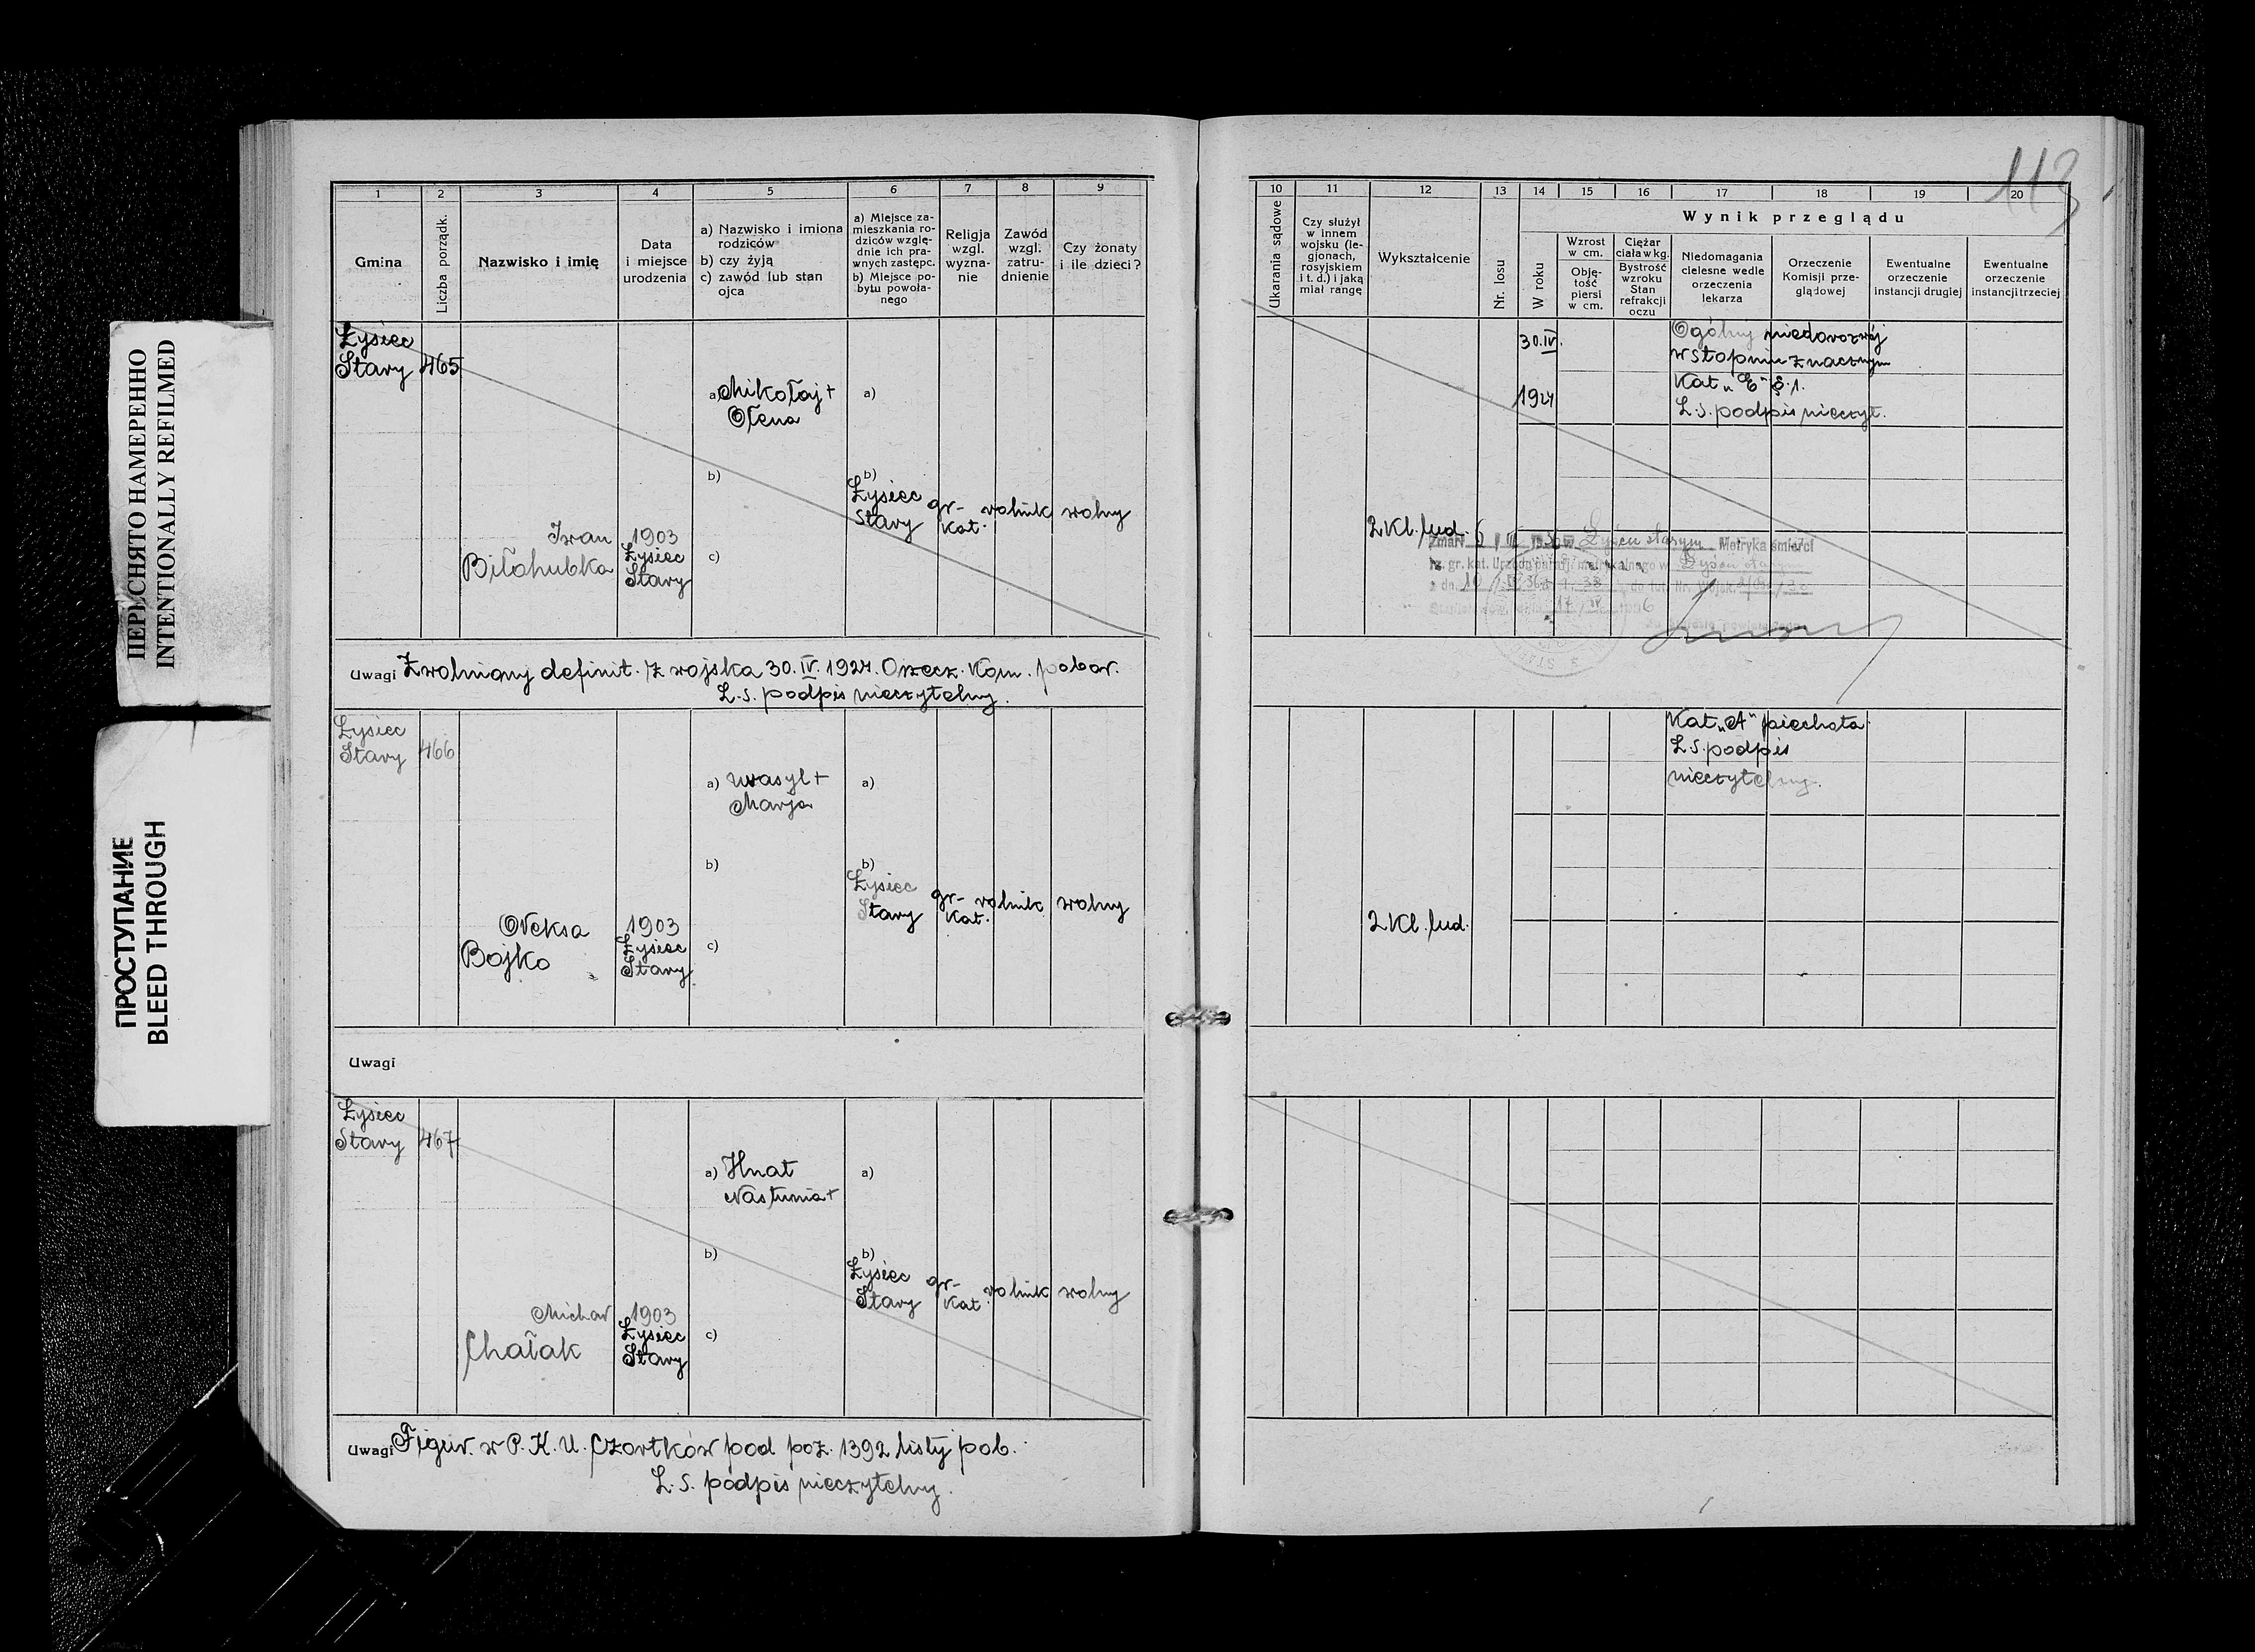 ПЕРЕСНЯТО НАМЕРЕННО
INTENTIONALLY REFILMED
ПРОСТУПАНИЕ
BLEED THROUGH
113
1 2 3 4 5 6 7 8 9
Gmina
Liczba porządk.
Nazwisko i imię
Data
i miejsce
urodzenia
a) Nazwisko i imiona
rodziców
b) czy żyją
c) zawód lub stan
ojca
a) Miejsce za-
mieszkania ro-
dziców wzglę-
dnie ich pra-
wnych zastępc.
b) Miejsce po-
bytu powoła-
nego
Religja
wzgl.
wyzna-
nie
Zawód
wzgl.
zatru-
dnienie
Czy żonaty
i ile dzieci?
10 11 12 13 14 15 16 17 18 19 20
Ukarania sądowe
Czy służył
w innem
wojsku (le-
gjonach,
rosyjskiem
i t. d.) i jaką
miał rangę
Wykształcenie
Nr. losu
Wynik przeglądu
W roku
Wzrost
w cm.
Obję-
tość
piersi
w cm.
Ciężar
ciała w kg.
Bystrość
wzroku
Stan
refrakcji
oczu
Niedomagania
cielesne wedle
orzeczenia
lekarza
Orzeczenie
Komisji prze-
glądowej
Ewentualne
orzeczenie
instancji drugiej
Ewentualne
orzeczenie
instancji trzeciej
Łysiec
Stary 465
Iwan
Biłohubka
1903
Łysiec
Stary
a) Mikołaj +
Ołena
b)
c)
a)
b)
Łysiec
Stary
gr-
kat.
rolnik
wolny
2 Kl. lud.
30.IV.
1924
Ogólny niedorozwój
w stopniu znacznym
Kat „E" §.1.
L.S. podpis nieczyt.
Zmarł w Łyścu starym Metryka śmierci
gr. kat. Urzędu metrykalnego w
z dn. 10
Uwagi Zwolniony definit. z wojska 30.IV.1924. Orzecz. Kom. pobor.
L.S. podpis nieczytelny.
Łysiec
Stary 466
Ołeksa
Bojko
1903
Łysiec
Stary
a) Wasyl +
Marja
b)
c)
a)
b)
Łysiec
Stary
gr-
kat.
rolnik
wolny
2 Kl. lud.
Kat „A" piechota
L.S. podpis
nieczytelny.
Uwagi
Łysiec
Stary 467
Michał
Chałak
1903
Łysiec
Stary
a) Hnat
Nastunia +
b)
c)
a)
b)
Łysiec
Stary
gr-
kat.
rolnik
wolny
Uwagi Figur. w P.K.U. Czortków pod poz. 1392 listy pob.
L.S. podpis nieczytelny.